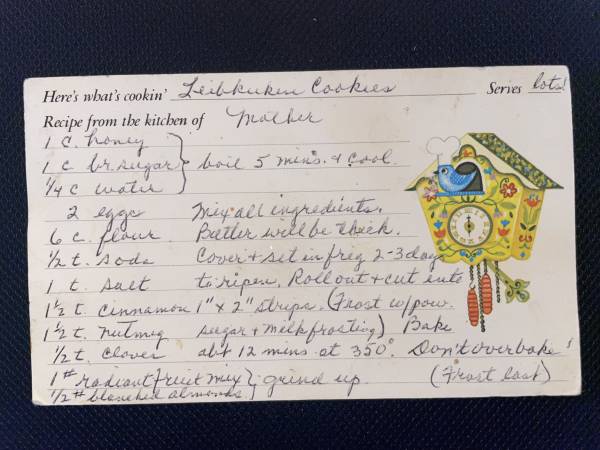 Here's what's cookin' Leibkuken Cookies Serves lots!
Recipe from the kitchen of Mother
1 c. honey
1 c br. sugar } boil 5 mins. & cool.
1/4 c water
2 eggs Mix all ingredients.
6 c. flour Batter will be thick.
1/2 t. soda Cover & set in frig 2-3 days
1 t. salt to ripen. Roll out & cut into
1 1/2 t. cinnamon 1" x 2" strips. (Frost w/pow.
1 1/2 t. nutmeg sugar & milk frosting) Bake
1/2 t. cloves abt 12 mins at 350°. Don't overbake!
1# radiant fruit mix } grind up. (Frost last)
1/2 # blanched almonds